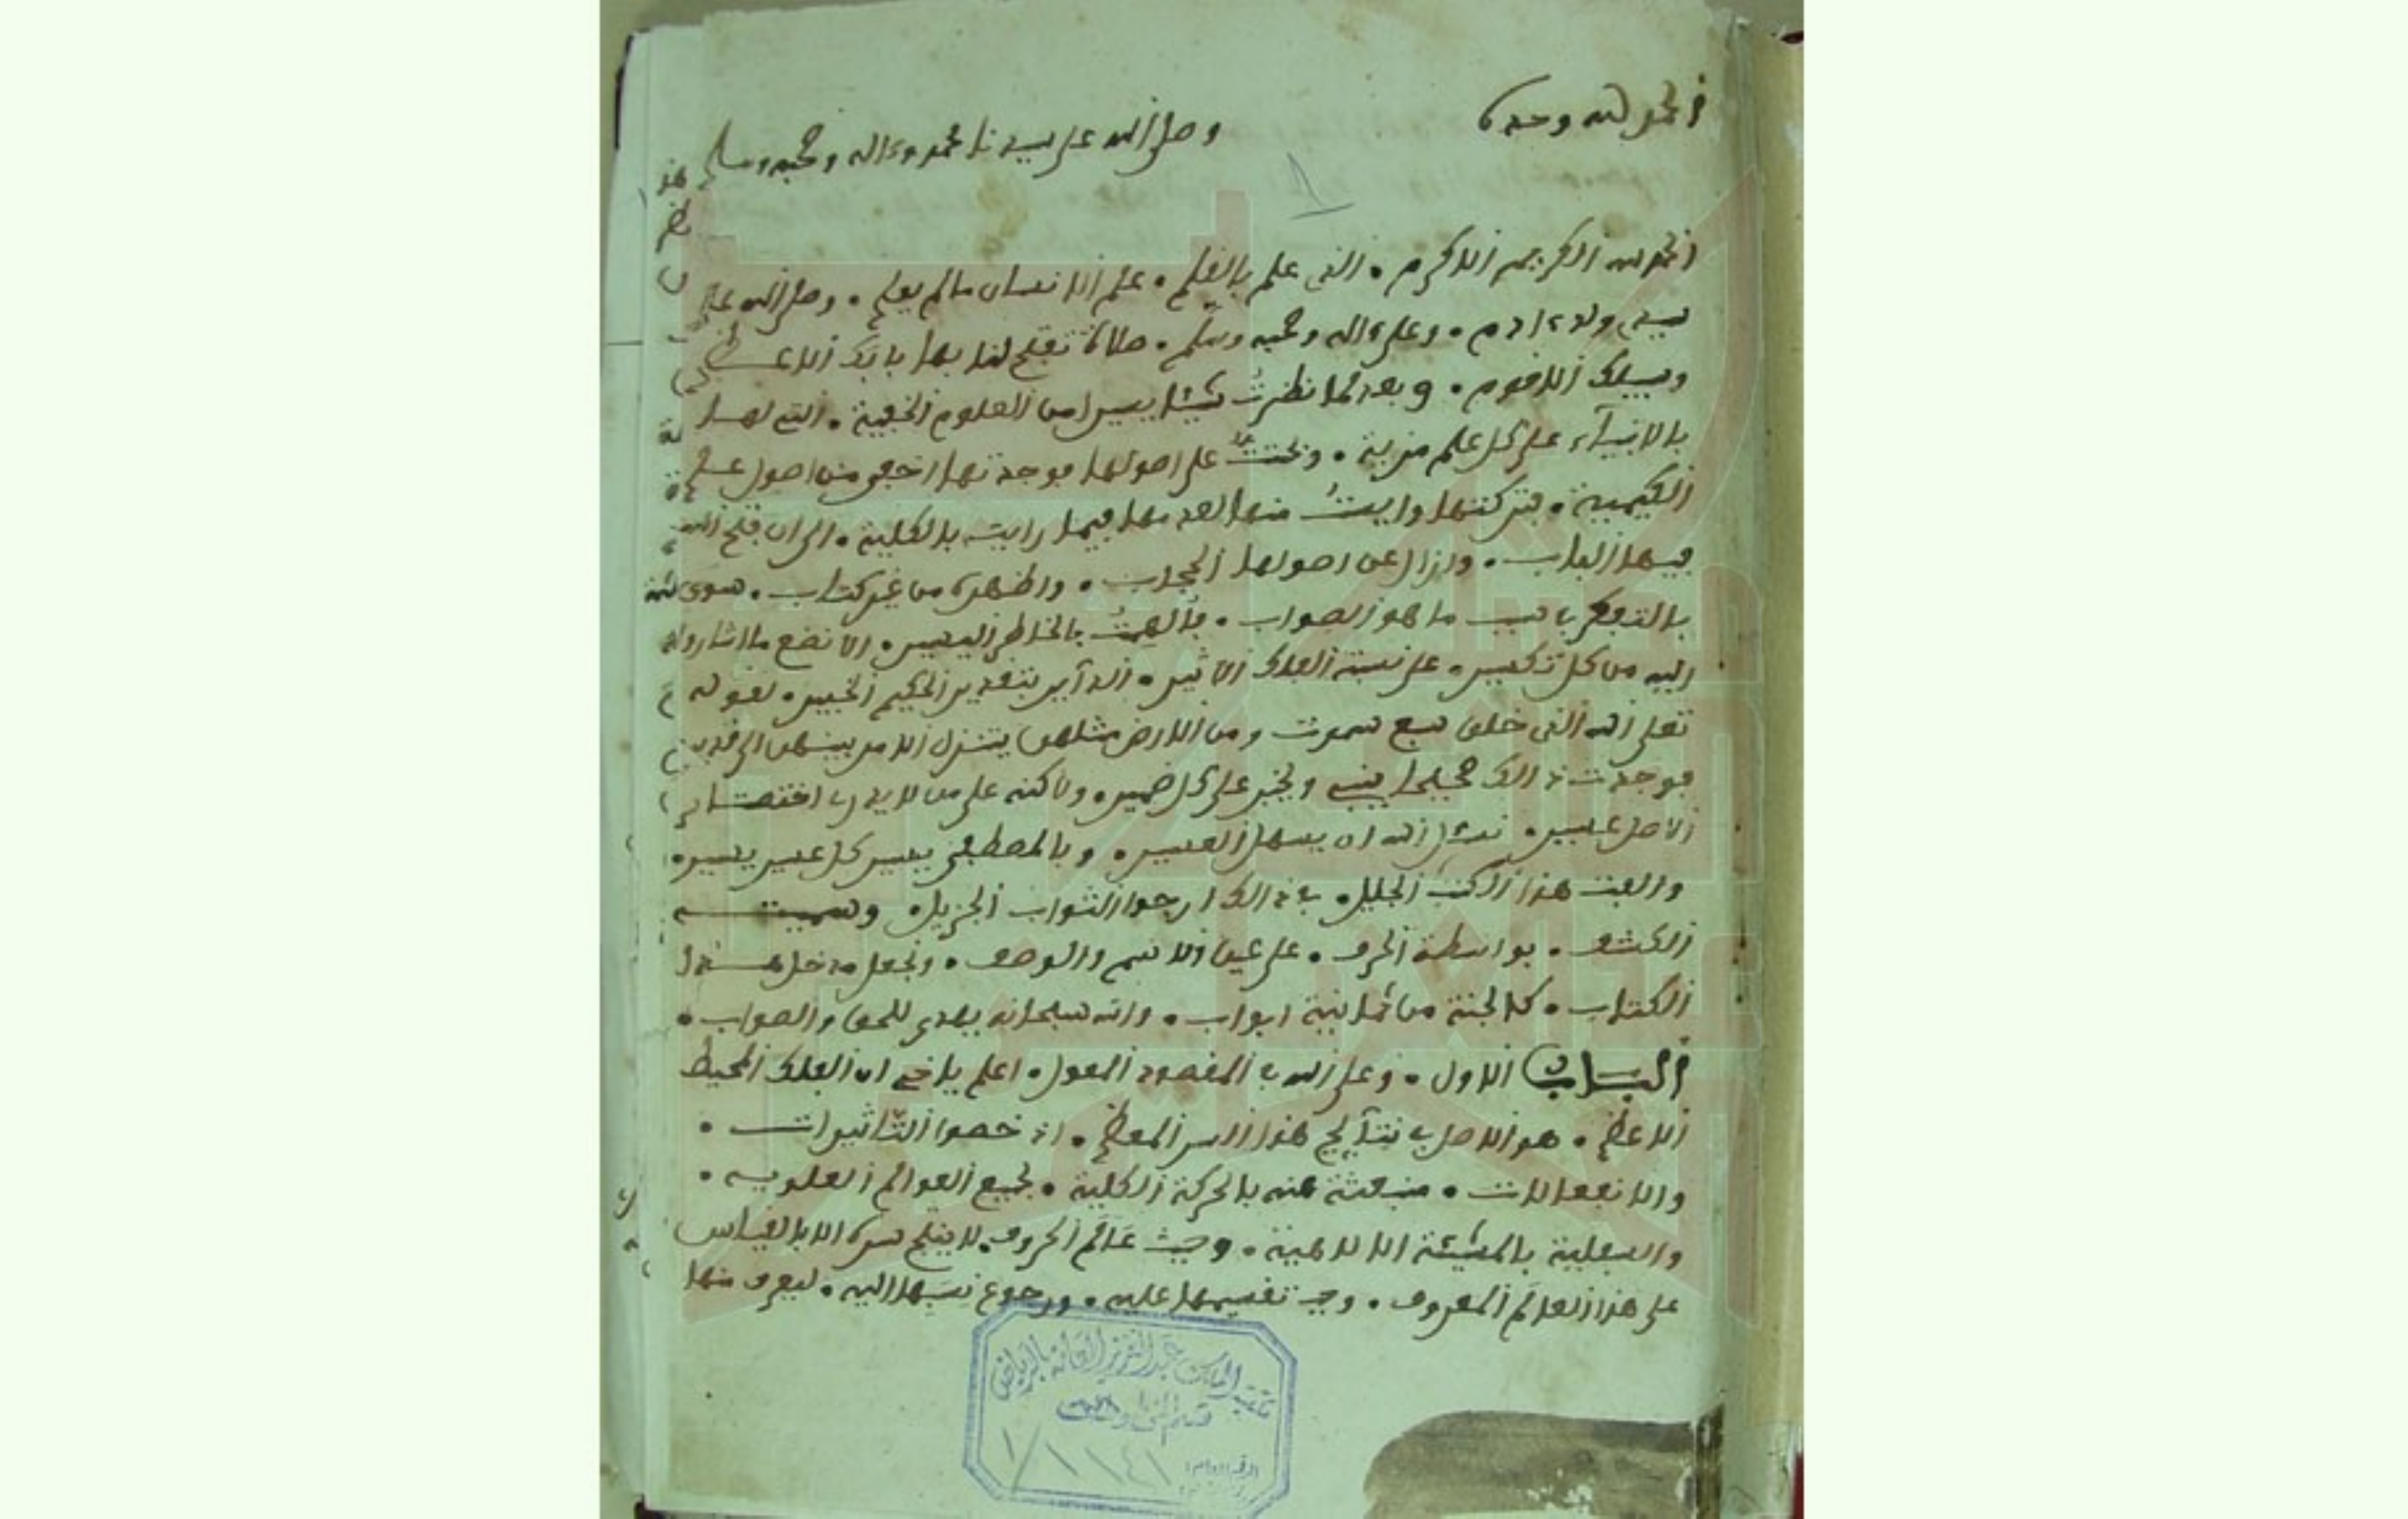 الحمد لله وحده
وصلى الله على سيدنا محمد وءاله وصحبه وسلم
الحمد لله الكريم الاكرم • الذى علم بالقلم • علم الانسان ما لم يعلم • وصلى الله على
سيد ولد ءادم • وعلى ءاله وصحبه وسلم • صلاة تفتح لنا بها بابك الاعظم
وسبيلك الاقوم • وبعد لما نظرت شيئا يسيرا من العلوم الخفية • التى لها
بالانبيآء على كل علم مزية • وبحثت على اصولها فوجدتها اخفى من اصول علم
الكيمية • فتركتها وايست منها لعدمها فيما رايته بالكلية • الى ان فتح الله
فيها الباب • وازال عن اصولها الحجاب • واظهره من غير كتاب • سوى
بالتفكر فى ما هو الصواب • فألهمت بالخاطر اليسير • الا نضع ما اشاروا
اليه من كل تكسير • على نسبة الفلك الاثير • الدآير بتقدير الحكيم الخبير • لقوله
تعلى الله الذى خلق سبع سموت ومن الارض مثلهن يتنزل الامر بينهن الى قدير
فوجدت ذالك صحيحا ينبى ويخبر على كل ضمير • ولاكنه على من لا يدرى
الاصل عسير • نسئل الله ان يسهل العسير • وبالمصطفى ييسر كل عسير يسير •
والفت هذا الكتب الجليل • فى ذالك ارجوا الثواب الجزيل • وسميته
الكشف • بواسطة الحرف • على عين الاسم والوصف • ونجعل مدخل هذا
الكتاب • كالجنة من ثمانية ابواب • والله سبحانه يهدى للحق والصواب •
الباب الاول • وعلى الله فى المقصود المعول • اعلم ياخى ان الفلك المحيط
الاعظم • هو الاصل فى نتآيج هذا السر المعظم • اذ خصوا التاثيرات •
والانفعالات • منبعثة عنه بالحركة الكلية • لجميع العوالم العلوية •
والسفلية بالمشيئة الالاهية • وحيث عالم الحروف لا يفتح سره الا بالقياس
على هذا العالم المعروف • وجب تقسيمها عليه • ورجوع نسبها اليه • ليعرف منها
مكتبة الملك عبد العزيز العامة بالرياض
قسم المخطوطات
الرقم العام: ١١٤١/١